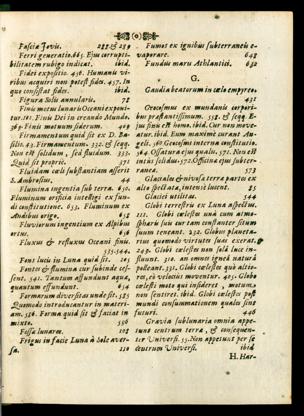 Fasciæ Jovis. 238 & 239
Ferri generatio. 665. Ejus corruptibilitatem rubigo indicat. ibid.
Fidei expositio. 456. Humanis viribus acquiri non potest fides. 457. In quo consistat fides. ibid.
Figura Solis annularis. 78
Finis motus lunaris Oceani exponitur. 101. Finis Dei in creando Mundo. 96. Finis motus siderum. 409
Firmamentum quid sit ex D. Basilio. 43. Firmamentum. 332. & seqq. Non est solidum, sed fluidum. 333.
Quid sit propriè. 371
Fluidam cæli substantiam asserit S. Ambrosius. 44
Flumina ingentia sub terra. 630.
Fluminum orificia intelligi ex fundi constitutione. 633. Fluminum ex Andibus origo. 638
Fluviorum ingentium ex Alpibus ortus. 638
Fluxus & refluxus Oceani finis. 535. 544.
Fons lucis in Luna quid sit. 101
Fontes & flumina cur subinde cessent. 541. Tantum affundunt aquæ, quantum effundunt. 634
Formarum diversitas unde sit. 385
Quomodo introducantur in materiam. 356. Forma quid sit & faciat in mixto. 356
Fossa lunares. 102
Frigus in facie Lunæ à Sole aversa. 110
Fumos ex ignibus subterraneis evaporare. 648
Fundus maris Athlantici. 632
G.
Gaudia beatorum in cælo empyreo. 431
Geocosmus ex mundanis corporibus præstantissimum. 558. & seqq. Ejus finis est homo. ibid. Cur non moveatur. ibid. Eum maximè curant Angeli. 560. Geocosmi interna constitutio. 564. Officina ejus qualis. 571. Non est intùs solidus. 572. Officina ejus subterranea. 573
Glacialis & nivosa terra parte ex alto spectata, intensè lucent. 85
Glaciei utilitas. 544
Globi terrestris ex Luna aspectus. 111. Globi cælestes unà cum atmosphæris suis cur tam constanter situm suum teneant. 232. Globus planetarius quomodo virtutes suas exerat. 249. Globi cælestes non sola luce influunt. 310. an omnes igneâ naturâ polleant. 351. Globi cælestes quò altiores, eò velociùs moventur. 405. Globo cælesti moto qui insideret, motum non sentiret. ibid. Globi cælestes post mundi consummationem quales sint futuri. 446
Gravia sublunaria omnia appetunt centrum terræ, & consequenter Universi. 55. Non appetunt per se centrum Universi. ibid
H. Har-